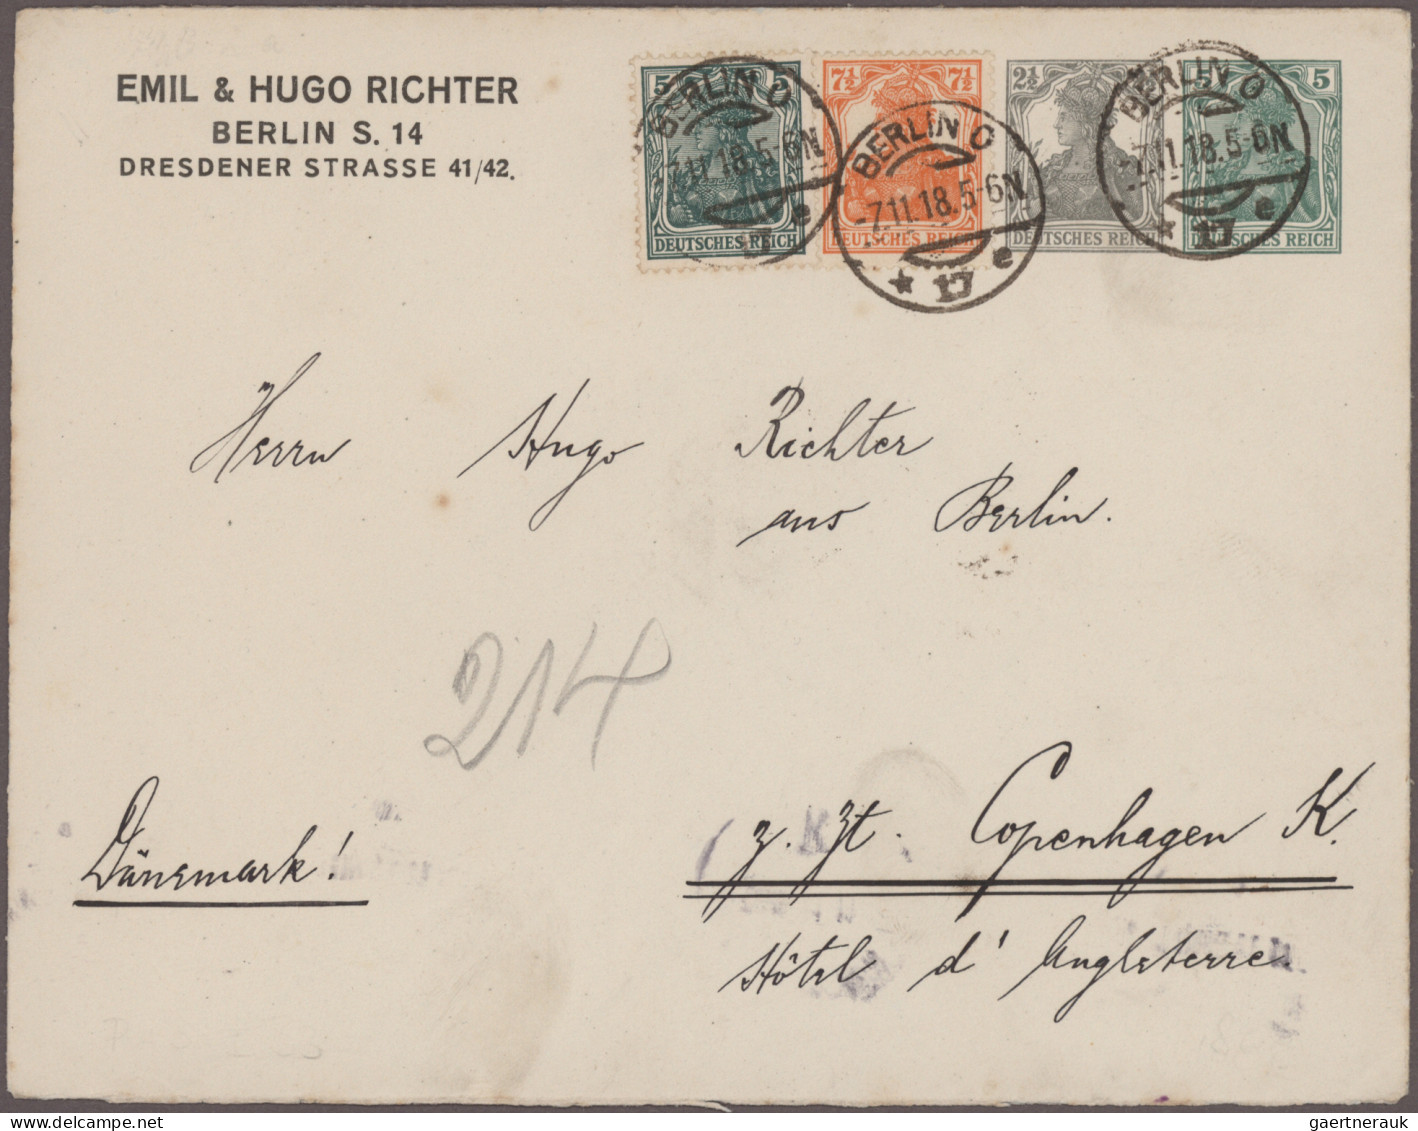 EMIL & HUGO RICHTER
BERLIN S. 14
DRESDENER STRASSE 41/42.
5 5
DEUTSCHES REICH
7½ 7½
DEUTSCHES REICH
2½
DEUTSCHES REICH
5
DEUTSCHES REICH
BERLIN O
7.11.18.5-6N
17 e
BERLIN O
-7.11.18.5-6N
* 17 e
BERLIN O
-7.11.18.5-6N
* 17 e
Herrn Hugo Richter
aus Berlin.
214
Dänemark!
z. Zt. Copenhagen K.
Hôtel d'Angleterre
gaertnerauk